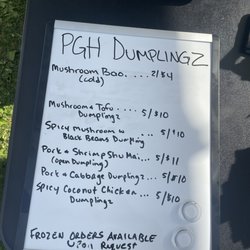 PGH DUMPLINGZ
Mushroom Bao.... 2/$4
(cold)
Mushroom & Tofu .... 5/$10
Dumplingz
Spicy Mushroom w ... 5/$10
Black Beans Dumpling
Pork & Shrimp Shu Mai... 5/$11
(open Dumpling)
Pork & Cabbage Dumplingz... 5/$10
Spicy Coconut Chicken ... 5/$10
Dumplingz
FROZEN ORDERS AVAILABLE
UPON REQUEST